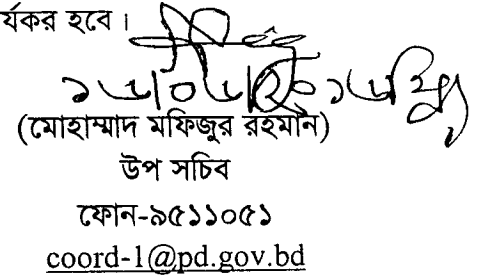 র্যকর হবে।
(মোহাম্মাদ মফিজুর রহমান)
উপ সচিব
ফোন-৯৫১১০৫১
coord-1@pd.gov.bd